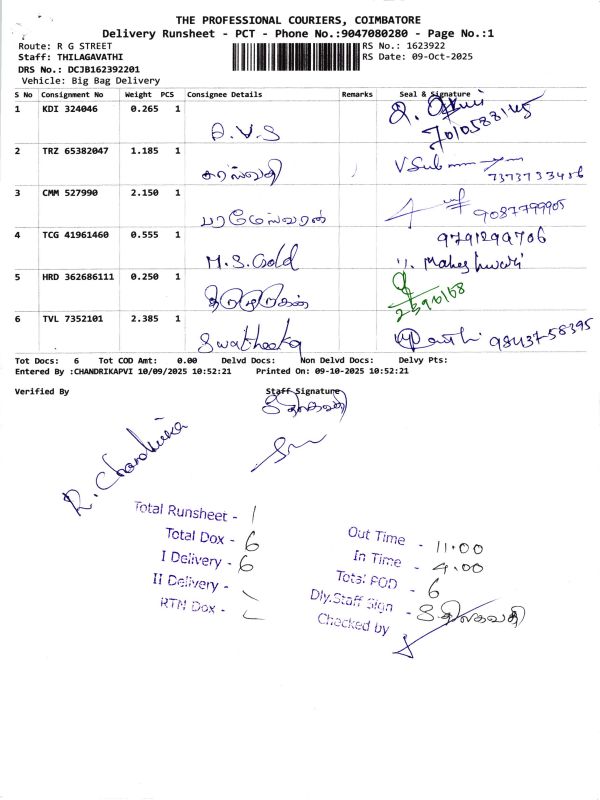 THE PROFESSIONAL COURIERS, COIMBATORE
Delivery Runsheet - PCT - Phone No.:9047080280 - Page No.:1
Route: R G STREET RS No.: 1623922
Staff: THILAGAVATHI RS Date: 09-Oct-2025
DRS No.: DCJB162392201
Vehicle: Big Bag Delivery
S No Consignment No Weight PCS Consignee Details Remarks Seal & Signature
1 KDI 324046 0.265 1 A.V.S 7010588145
2 TRZ 65382047 1.185 1 சரஸ்வதி 7373733456
3 CMM 527990 2.150 1 பரமேஸ்வரன் 9087799905
4 TCG 41961460 0.555 1 M.S.Gold 9791299706
Maheshwari
5 HRD 362686111 0.250 1 2390168
6 TVL 7352101 2.385 1 Swatheeka 9843758395
Tot Docs: 6 Tot COD Amt: 0.00 Delvd Docs: Non Delvd Docs: Delvy Pts:
Entered By :CHANDRIKAPVI 10/09/2025 10:52:21 Printed On: 09-10-2025 10:52:21
Verified By Staff Signature
திலகவதி
R. Chandrika
Total Runsheet - 1
Total Dox - 6
I Delivery - 6
II Delivery -
RTN Dox -
Out Time - 11.00
In Time - 4.00
Total POD - 6
Dly.Staff Sign - திலகவதி
Checked by